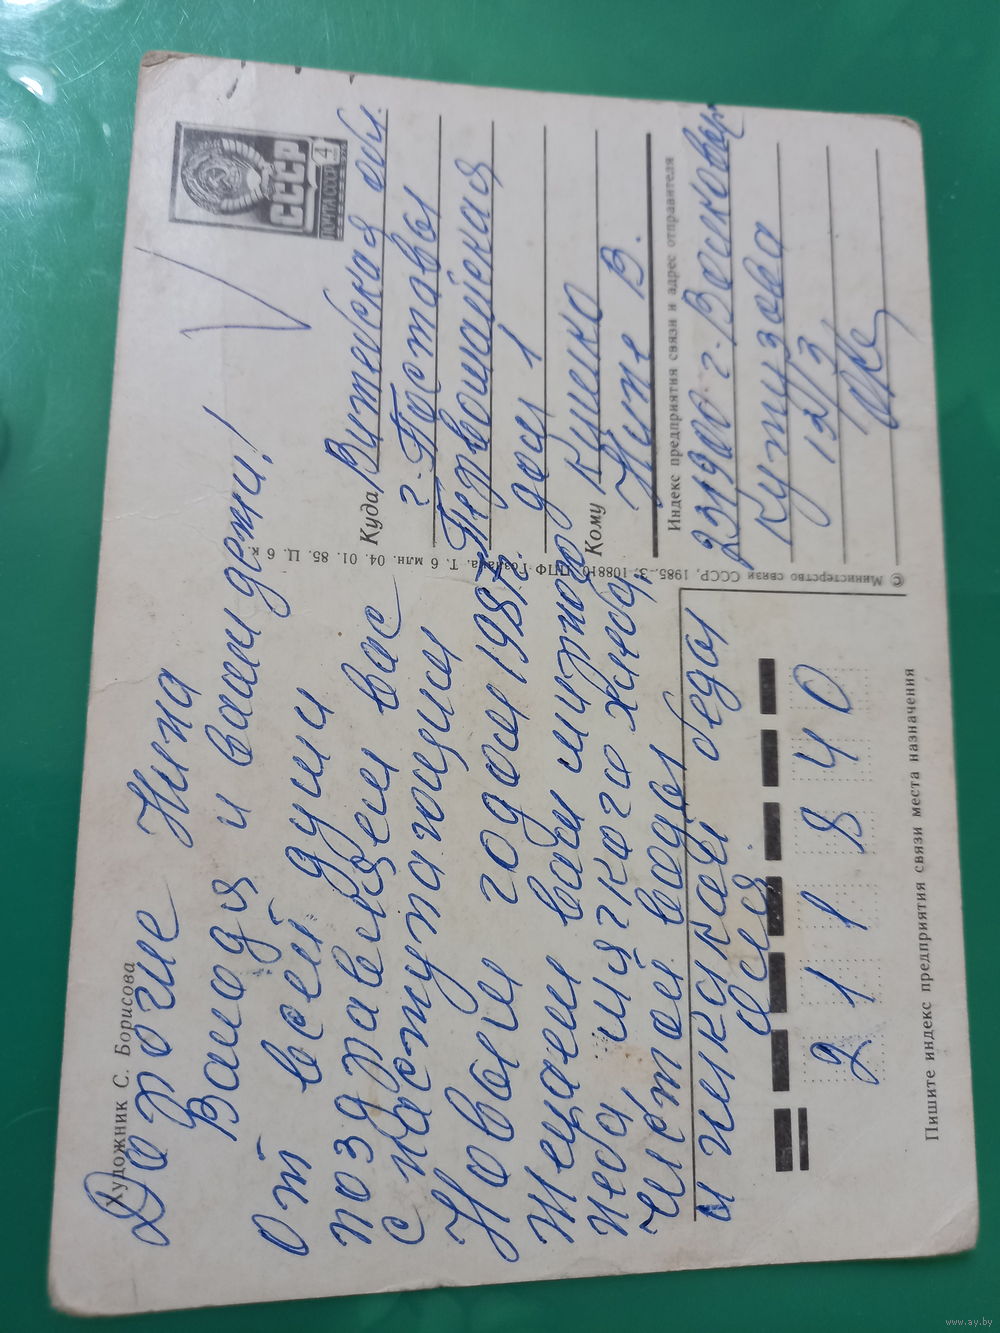 Художник С. Борисова
Дорогие Нина
Валодя и ваши дети!
от всей души
поздравляем вас
с наступающим
Новым годом 1987г.
Желаем вам мирного
неба мягкого хлеба
чистой воды
и никакой беды
СССР
ПОЧТА СССР 4
Куда Витебская обл.
г. Поставы
Первомайская
дом 1
Кому
Нине В.
Индекс предприятия связи и адрес отправителя
г. Волковыск
Кутузова
12/3
© Министерство связи СССР, 1985. З. 108810. ППФ Гознака. Т. 6 млн. 04. 01. 85. Ц. 6 к.
211840
Пишите индекс предприятия связи места назначения
www.ay.by